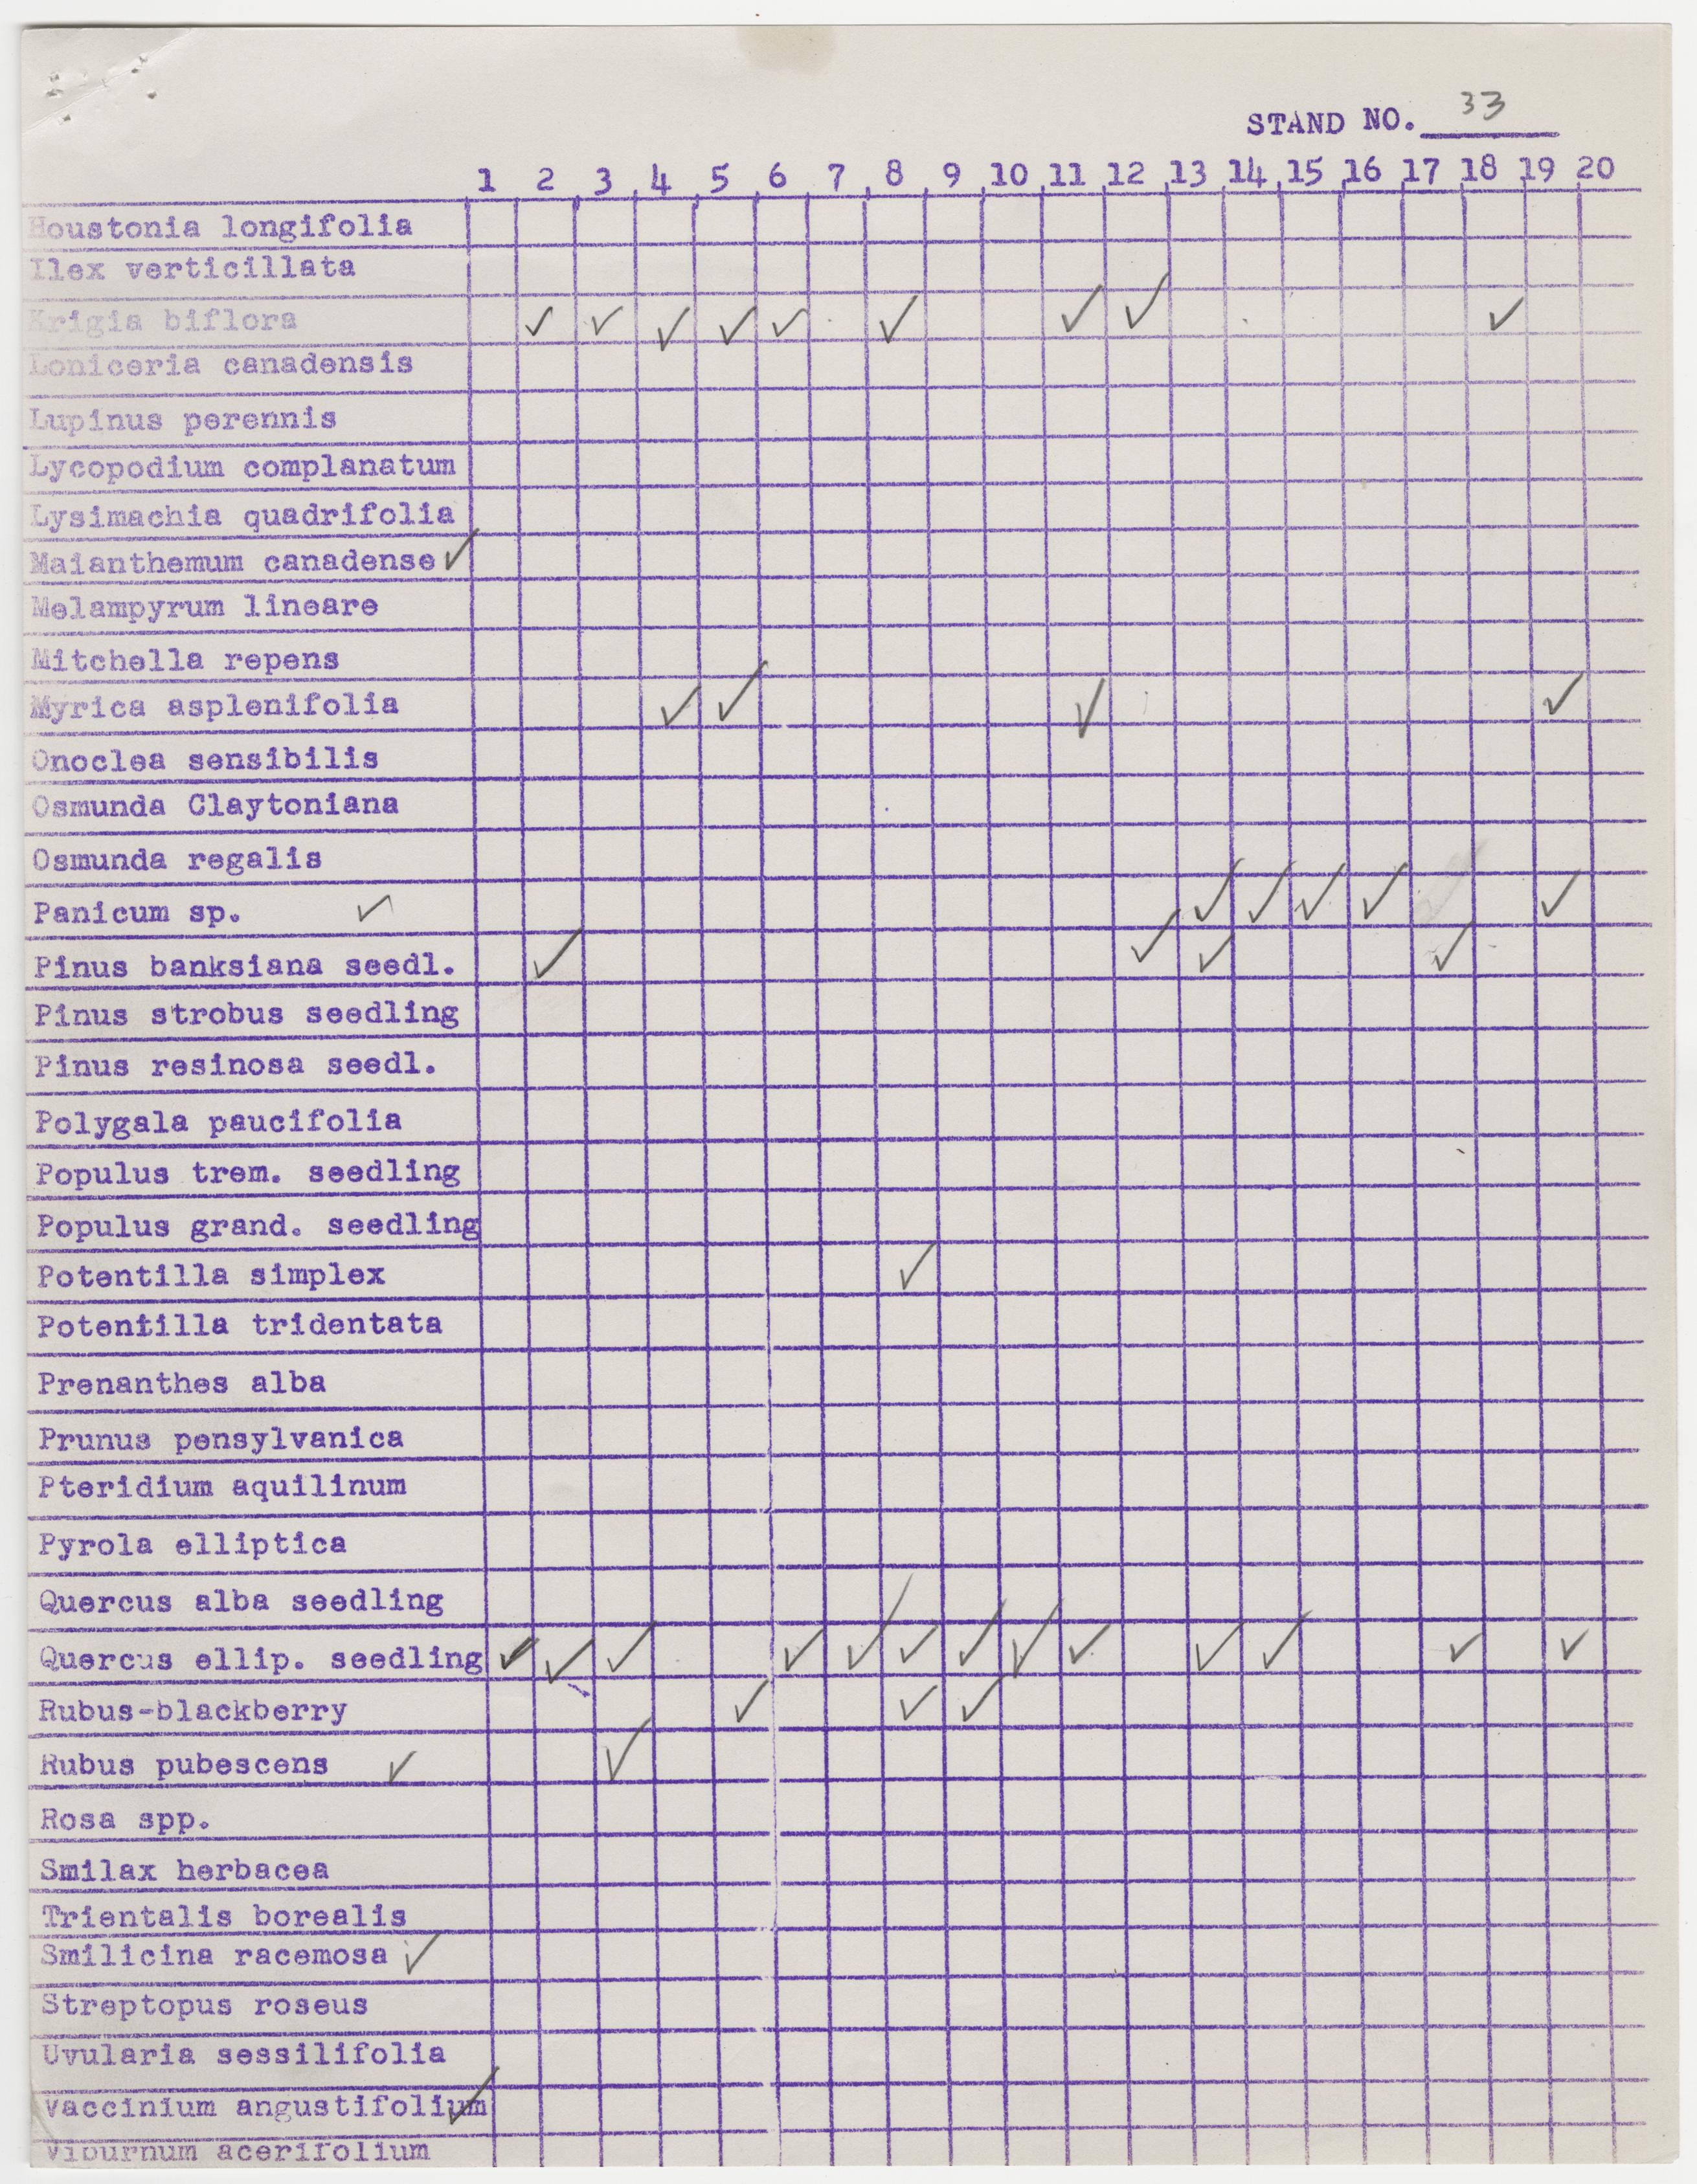 STAND NO. 33
1 2 3 4 5 6 7 8 9 10 11 12 13 14 15 16 17 18 19 20
Houstonia longifolia
Ilex verticillata
Krigia biflora ✓ ✓ ✓ ✓ ✓ ✓ ✓ ✓ ✓
Loniceria canadensis
Lupinus perennis
Lycopodium complanatum
Lysimachia quadrifolia
Maianthemum canadense ✓
Melampyrum lineare
Mitchella repens
Myrica asplenifolia ✓ ✓ ✓ ✓
Onoclea sensibilis
Osmunda Claytoniana
Osmunda regalis
Panicum sp. ✓ ✓ ✓ ✓ ✓ ✓
Pinus banksiana seedl. ✓ ✓ ✓ ✓
Pinus strobus seedling
Pinus resinosa seedl.
Polygala paucifolia
Populus trem. seedling
Populus grand. seedling
Potentilla simplex ✓
Potentilla tridentata
Prenanthes alba
Prunus pensylvanica
Pteridium aquilinum
Pyrola elliptica
Quercus alba seedling
Quercus ellip. seedling ✓ ✓ ✓ ✓ ✓ ✓ ✓ ✓ ✓ ✓ ✓ ✓ ✓
Rubus-blackberry ✓ ✓ ✓
Rubus pubescens ✓ ✓
Rosa spp.
Smilax herbacea
Trientalis borealis
Smilicina racemosa ✓
Streptopus roseus
Uvularia sessilifolia
Vaccinium angustifolium ✓
Viburnum acerifolium